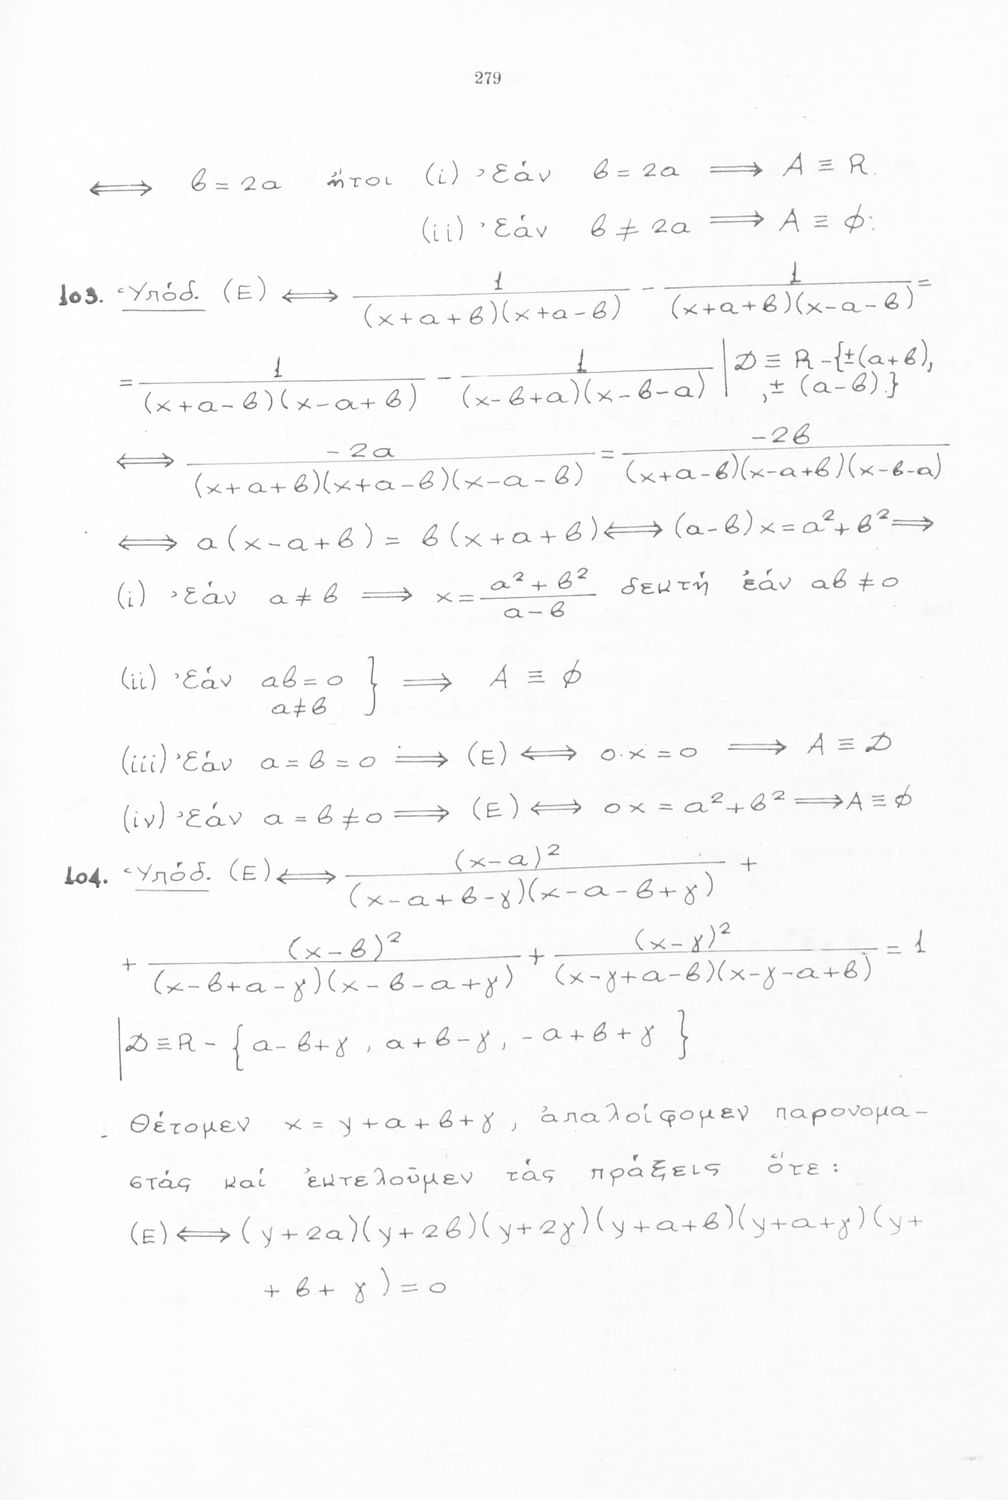 279
⟺ β = 2α ἤτοι (i) Ἐάν β = 2α ⟹ A ≡ R.
(ii) Ἐάν β ≠ 2α ⟹ A ≡ ϕ.
103. Ὑπόδ. (E) ⟺ 1/((x+α+β)(x+α-β)) - 1/((x+α+β)(x-α-β)) =
= 1/((x+α-β)(x-α+β)) - 1/((x-β+α)(x-β-α)) | D ≡ R -{±(α+β), ,± (α-β).}
⟺ -2α/((x+α+β)(x+α-β)(x-α-β)) = -2β/((x+α-β)(x-α+β)(x-β-α))
⟺ α(x-α+β) = β(x+α+β) ⟺ (α-β)x = α²+β² ⟹
(i) Ἐάν α ≠ β ⟹ x = (α²+β²)/(α-β) δεκτή ἐάν αβ ≠ 0
(ii) Ἐάν αβ = 0 } ⟹ A ≡ ϕ
α ≠ β
(iii) Ἐάν α = β = 0 ⟹ (E) ⟺ 0·x = 0 ⟹ A ≡ D
(iv) Ἐάν α = β ≠ 0 ⟹ (E) ⟺ 0x = α²+β² ⟹ A ≡ ϕ
104. Ὑπόδ. (E) ⟺ (x-α)²/((x-α+β-γ)(x-α-β+γ)) +
+ (x-β)²/((x-β+α-γ)(x-β-α+γ)) + (x-γ)²/((x-γ+α-β)(x-γ-α+β)) = 1
| D ≡ R - {α-β+γ , α+β-γ, -α+β+γ}
Θέτομεν x = y+α+β+γ, ἀπαλοίφομεν παρονομα-
στάς καί ἐκτελοῦμεν τάς πράξεις ὅτε :
(E) ⟺ (y+2α)(y+2β)(y+2γ)(y+α+β)(y+α+γ)(y+
+β+γ) = 0